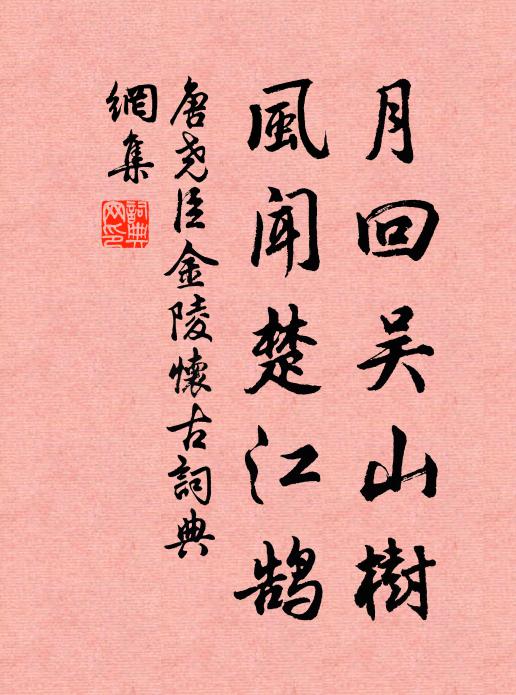 月回吴山樹
風聞楚江鹄
唐尧臣金陵懷古詞典
網集
詞典
网印